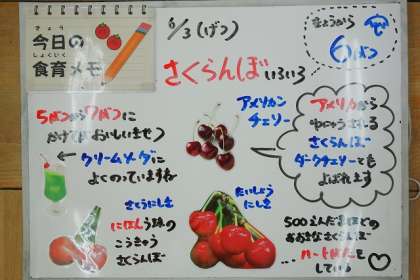 きょう
今日の
しょくいく
食育メモ
6/3(げつ)
きょうから
6がつ
さくらんぼいろいろ
5がつから7がつに
かけておいしいませつ
← クリームソーダに
よくのっていますね
アメリカン
チェリー
アメリカから
ゆにゅうされる
さくらんぼ
ダークチェリーとも
よばれます
さとうにしき
にほん うまれの
こうきゅう
さくらんぼ
たいしょう
にしき
500えんだまほどの
おおきなさくらんぼ
…ハートがたを
している